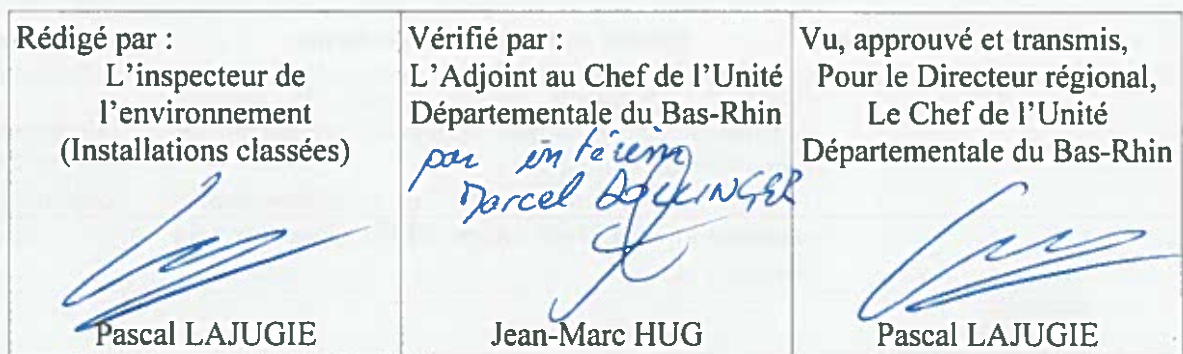 Rédigé par :
L'inspecteur de
l'environnement
(Installations classées)
Pascal LAJUGIE
Vérifié par :
L'Adjoint au Chef de l'Unité
Départementale du Bas-Rhin
par intérim
Marcel
Jean-Marc HUG
Vu, approuvé et transmis,
Pour le Directeur régional,
Le Chef de l'Unité
Départementale du Bas-Rhin
Pascal LAJUGIE